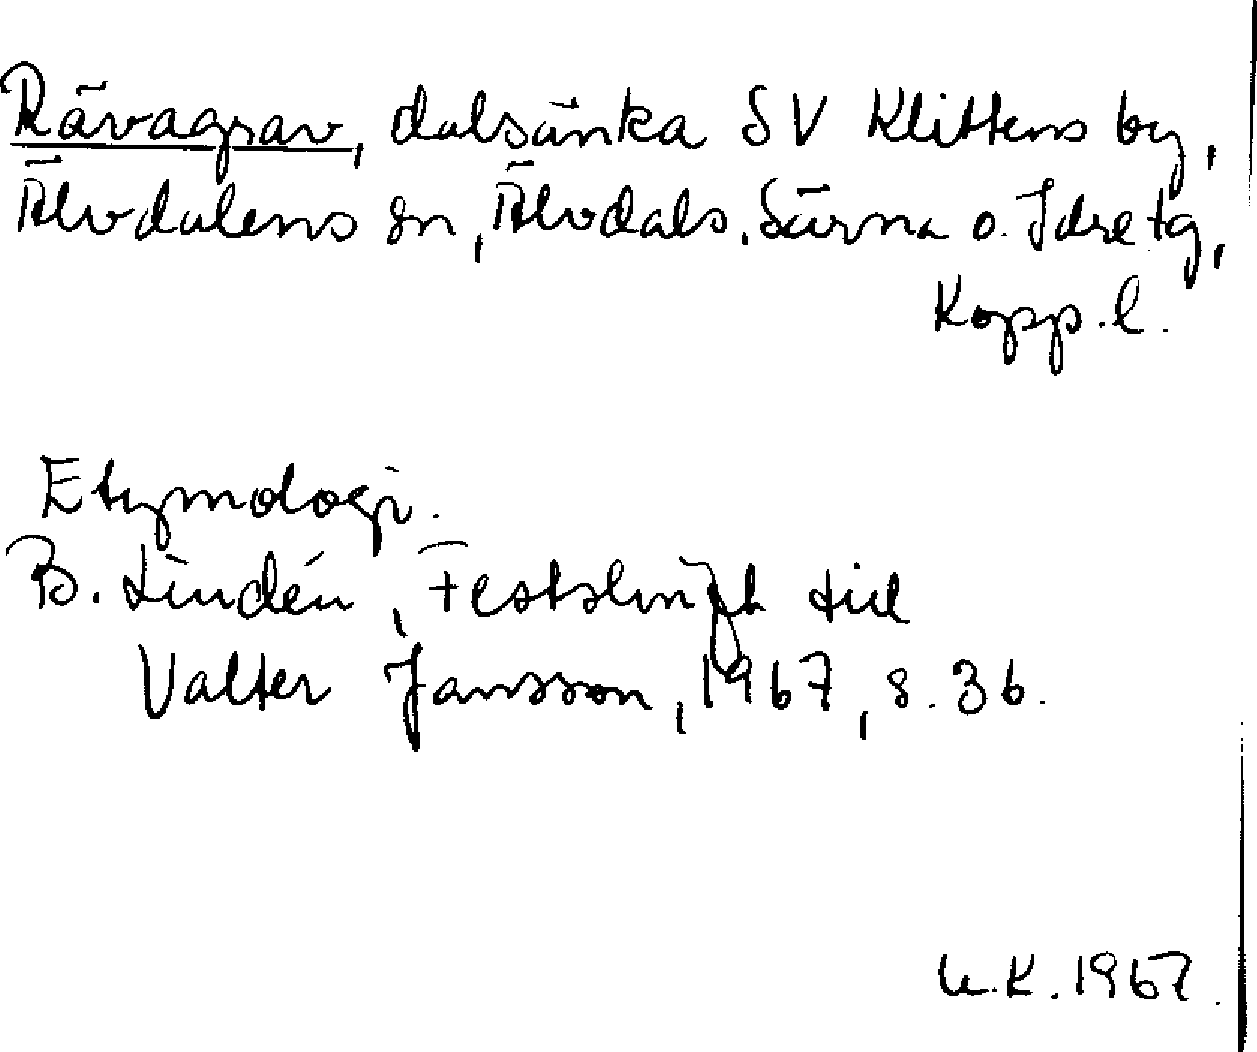 Rävagrav, dalsänka SV Klittens by,
Älvdalens sn, Älvdals, Särna o. Idre tg,
Kopp. l.
Etymologi.
B. Lindén, Festskrift till
Valter Jansson, 1967, s. 36.
U.K. 1967.